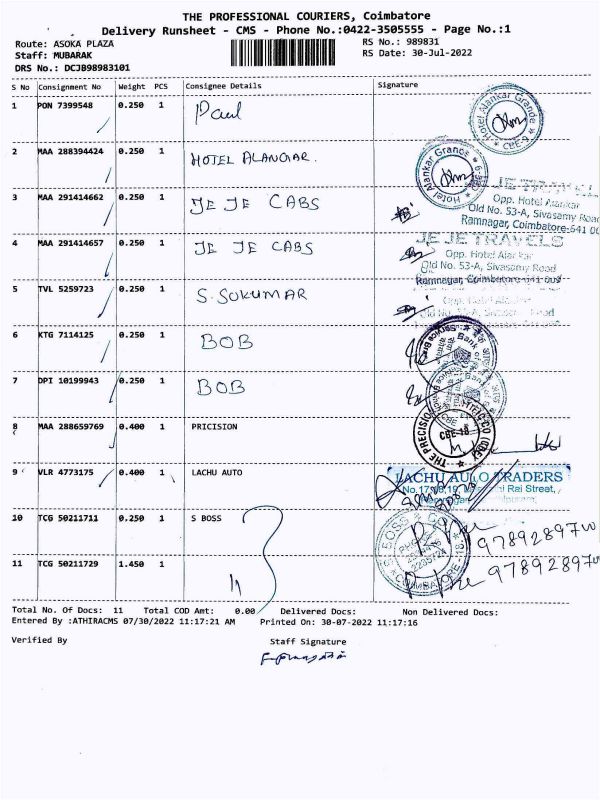 THE PROFESSIONAL COURIERS, Coimbatore
Delivery Runsheet - CMS - Phone No.:0422-3505555 - Page No.:1
Route: ASOKA PLAZA RS No.: 989831
Staff: MUBARAK RS Date: 30-Jul-2022
DRS No.: DCJB98983101
S No Consignment No Weight PCS Consignee Details Signature
1 PON 7399548 0.250 1 Paul
Hotel Alankar Grande CBE-9
2 MAA 288394424 0.250 1 HOTEL ALANGAR.
Hotel Alankar Grande
3 MAA 291414662 0.250 1 JE JE CABS
JE TRAVEL
Opp. Hotel Alankar
Old No. 53-A, Sivasamy Road
Ramnagar, Coimbatore-641 00
4 MAA 291414657 0.250 1 JE JE CABS
JE JE TRAVELS
Opp. Hotel Alankar
Old No. 53-A, Sivasamy Road
Ramnagar, Coimbatore-641 009
5 TVL 5259723 0.250 1 S. SUKUMAR
6 KTG 7114125 0.250 1 BOB
7 DPI 10199943 0.250 1 BOB
8 MAA 288659769 0.400 1 PRICISION
CBE-18
9 VLR 4773175 0.400 1 LACHU AUTO
LACHU AUTO TRADERS
Rai Street,
10 TCG 50211711 0.250 1 S BOSS
S BOSS
COIMBATORE
11 TCG 50211729 1.450 1
Total No. Of Docs: 11 Total COD Amt: 0.00 Delivered Docs: Non Delivered Docs:
Entered By :ATHIRACMS 07/30/2022 11:17:21 AM Printed On: 30-07-2022 11:17:16
Verified By Staff Signature